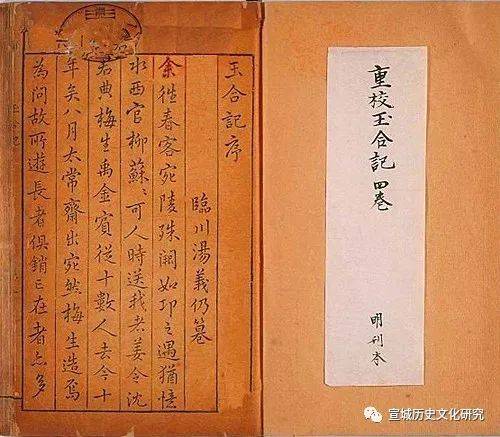 重校玉合記 四卷
明刊本
玉合記序
臨川湯義仍纂
余徃春客宛陵殊闕如卭之遇猶憶
水西官柳蘇〻可人時送我者姜令沈
君典梅生禹金賓從十數人去今十
年矣八月太常齋出宛然梅生造焉
為問故所遊長者俱銷亡在者亦多
宣城历史文化研究